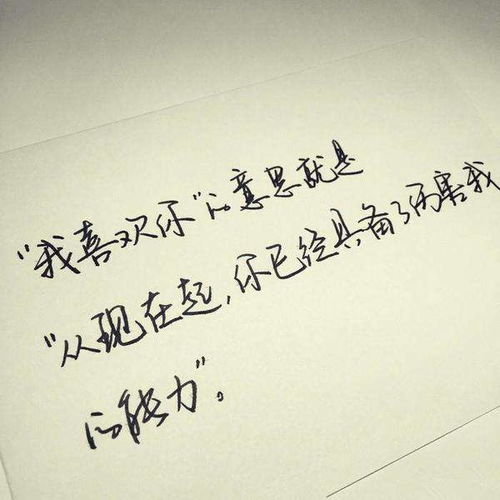 "我喜欢你"的意思就是
"从现在起,你已经具备了伤害我
的能力"。